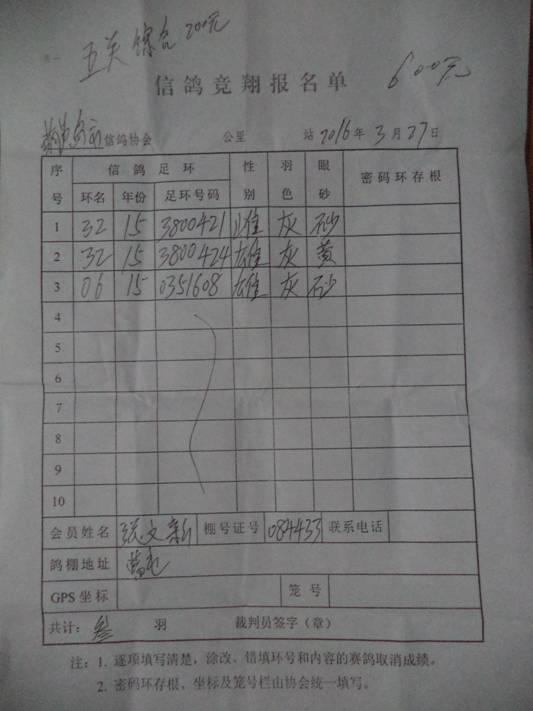 五关综合200元
信鸽竞翔报名单 600元
信鸽协会 公里 站 2016年3月27日
序号 信鸽足环 性别 羽色 眼砂 密码环存根
环名 年份 足环号码
1 32 15 3800421 雌 灰 砂
2 32 15 3800424 雄 灰 黄
3 06 15 0351608 雄 灰 砂
4
5
6
7
8
9
10
会员姓名 文新 棚号证号 084433 联系电话
鸽棚地址
GPS坐标 笼号
共计：叁 羽 裁判员签字（章）
注：1. 逐项填写清楚，涂改、错填环号和内容的赛鸽取消成绩。
2. 密码环存根、坐标及笼号栏由协会统一填写。